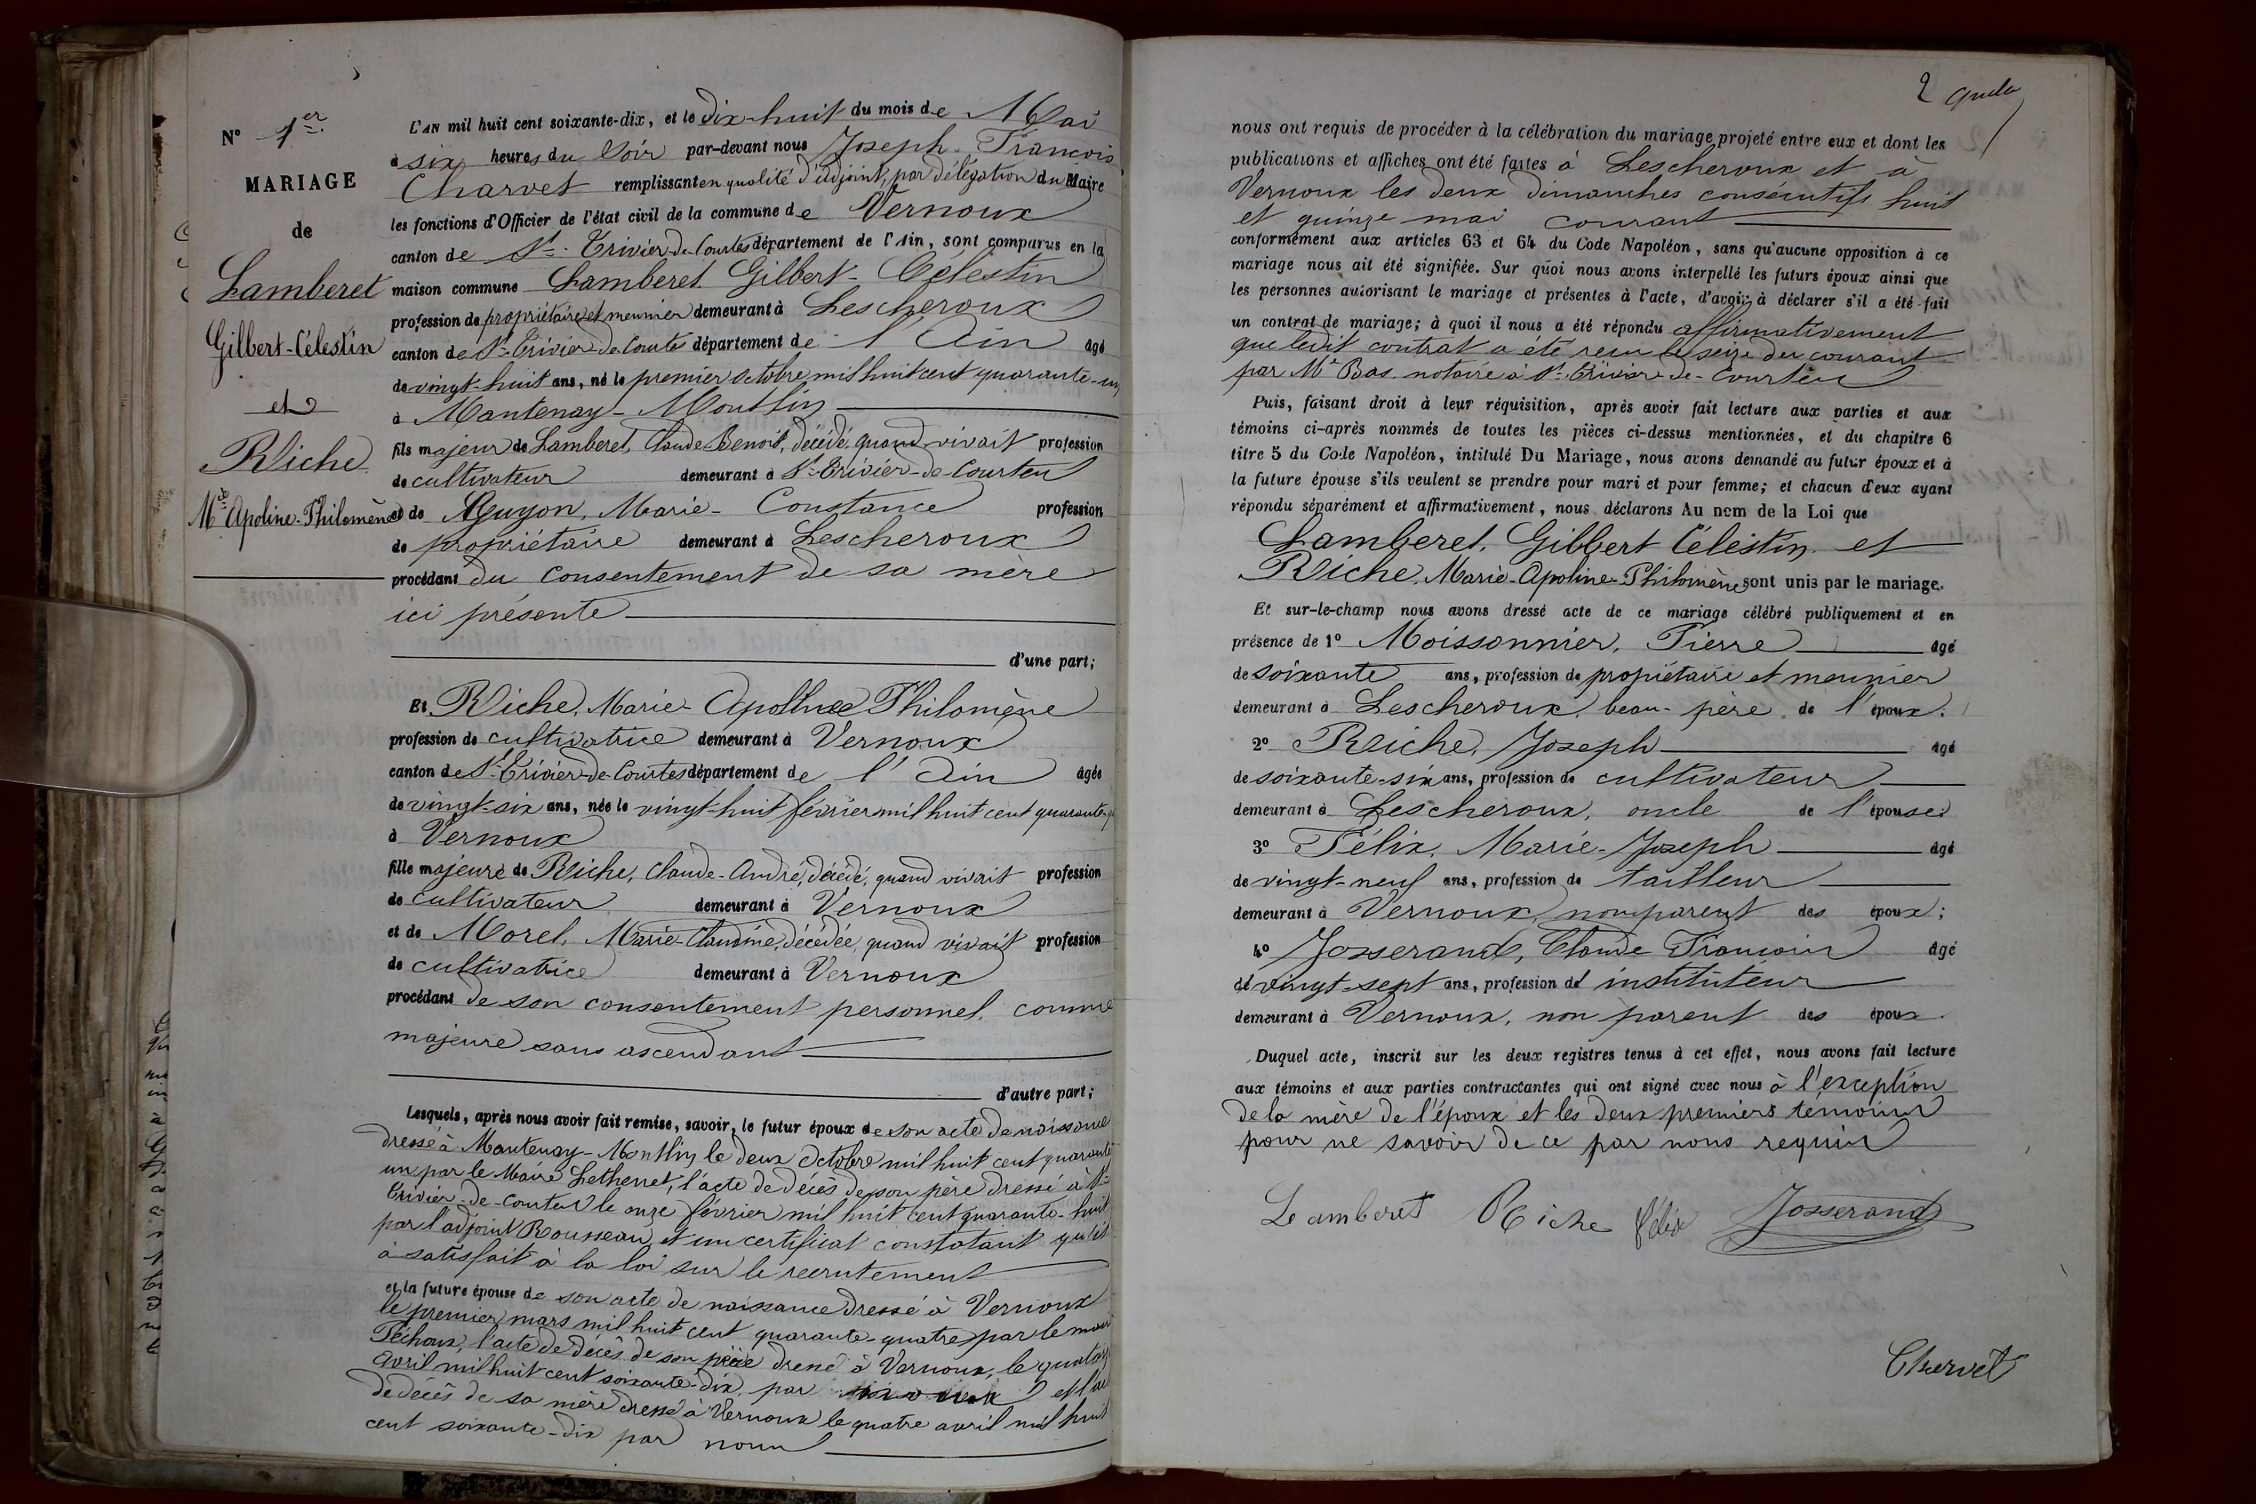 N° 1er
MARIAGE
de
Lamberet
Gilbert-Célestin
et
Riche
Mie Apoline-Philomène
L'AN mil huit cent soixante-dix, et le dix-huit du mois de Mai
à six heures du Soir par-devant nous Joseph-François
Charvet remplissant en qualité d'adjoint, par délégation du Maire
les fonctions d'Officier de l'état civil de la commune de Vernoux
canton de St-Trivier-de-Courtes département de l'Ain, sont comparus en la
maison commune Lamberet Gilbert-Célestin
profession de propriétaire et meunier demeurant à Lescheroux
canton de St-Trivier-de-Courtes département de l'Ain âgé
de vingt-huit ans, né le premier octobre mil huit cent quarante-un
à Mantenay-Montlin
fils majeur de Lamberet, Claude Benoit, décédé, quand vivait profession
de cultivateur demeurant à St-Trivier-de-Courtes
et de Guyon, Marie-Constance profession
de propriétaire demeurant à Lescheroux
procédant du consentement de sa mère
ici présente
d'une part;
Et Riche, Marie-Apolline Philomène
profession de cultivatrice demeurant à Vernoux
canton de St-Trivier-de-Courtes département de l'Ain âgée
de vingt-six ans, née le vingt-huit février mil huit cent quarante
à Vernoux
fille majeure de Riche, Claude-André, décédé, quand vivait profession
de cultivateur demeurant à Vernoux
et de Morel, Marie-Claudine, décédée, quand vivait profession
de cultivatrice demeurant à Vernoux
procédant de son consentement personnel comme
majeure sans ascendant
d'autre part;
Lesquels, après nous avoir fait remise, savoir, le futur époux de son acte de naissance
dressé à Mantenay-Montlin le deux octobre mil huit cent quarante
un par le Maire Lethenet, l'acte de décès de son père dressé à St
Trivier-de-Courtes le onze février mil huit cent quarante-huit
par l'adjoint Rousseau et un certificat constatant qu'il
a satisfait à la loi sur le recrutement
et la future épouse de son acte de naissance dressé à Vernoux
le premier mars mil huit cent quarante-quatre par le maire
Péchoux, l'acte de décès de son père dressé à Vernoux, le quatorze
avril mil huit cent soixante-dix, par nous et l'acte
de décès de sa mère dressé à Vernoux le quatre avril mil huit
cent soixante-dix par nous
2
nous ont requis de procéder à la célébration du mariage projeté entre eux et dont les
publications et affiches ont été faites à Lescheroux et à
Vernoux les deux dimanches consécutifs huit
et quinze mai courant
conformément aux articles 63 et 64 du Code Napoléon, sans qu'aucune opposition à ce
mariage nous ait été signifiée. Sur quoi nous avons interpellé les futurs époux ainsi que
les personnes autorisant le mariage et présentes à l'acte, d'avoir à déclarer s'il a été fait
un contrat de mariage; à quoi il nous a été répondu affirmativement
que ledit contrat a été reçu le seize du courant
par Me Bas notaire à St-Trivier-de-Courtes
Puis, faisant droit à leur réquisition, après avoir fait lecture aux parties et aux
témoins ci-après nommés de toutes les pièces ci-dessus mentionnées, et du chapitre 6
titre 5 du Code Napoléon, intitulé Du Mariage, nous avons demandé au futur époux et à
la future épouse s'ils veulent se prendre pour mari et pour femme; et chacun d'eux ayant
répondu séparément et affirmativement, nous déclarons Au nom de la Loi que
Lamberet, Gilbert Célestin et
Riche, Marie-Apoline-Philomène sont unis par le mariage.
Et sur-le-champ nous avons dressé acte de ce mariage célébré publiquement et en
présence de 1° Moissonnier, Pierre âgé
de soixante ans, profession de propriétaire et meunier
demeurant à Lescheroux, beau-père de l'époux.
2° Riche, Joseph âgé
de soixante-six ans, profession de cultivateur
demeurant à Lescheroux, oncle de l'épouse.
3° Félix, Marie-Joseph âgé
de vingt-neuf ans, profession de tailleur
demeurant à Vernoux, non parent des époux;
4° Josserand, Claude François âgé
de vingt-sept ans, profession d'instituteur
demeurant à Vernoux, non parent des époux.
Duquel acte, inscrit sur les deux registres tenus à cet effet, nous avons fait lecture
aux témoins et aux parties contractantes qui ont signé avec nous à l'exception
de la mère de l'époux et les deux premiers témoins
pour ne savoir de ce par nous requis
Lamberet Riche Félix Josserand
Charvet